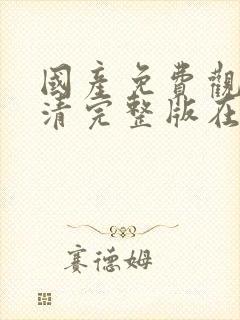 國產免費觀
清完整版在
賽德姆